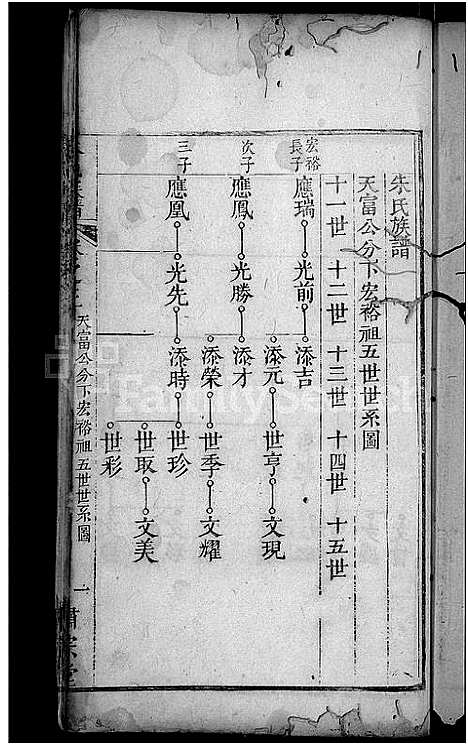 朱氏族譜
天富公分下宏裕祖五世世系圖
十一世 十二世 十三世 十四世 十五世
宏裕長子 應瑞 光前 添吉
添元 世亨 文現
次子 應鳳 光勝 添才
添榮 世季 文耀
三子 應凰 光先 添時 世珍
世取 文美
世彩
天富公分下宏裕祖五世世系圖 一
FamilySearch